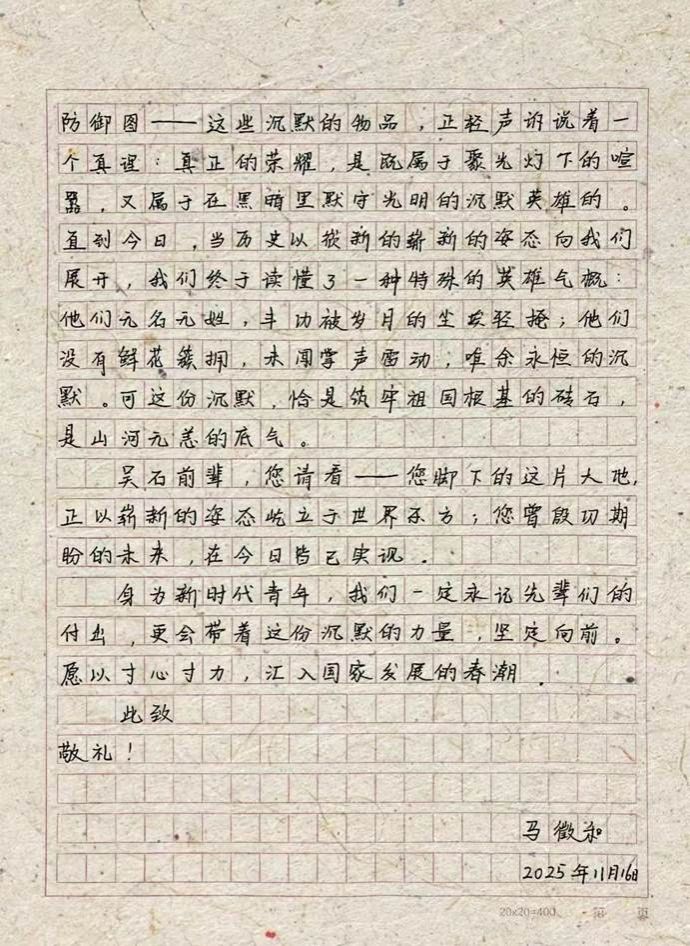 防御图——这些沉默的物品，正轻声诉说着一
个真理：真正的荣耀，是既属于聚光灯下的喧
嚣，又属于在黑暗里默守光明的沉默英雄的。
直到今日，当历史以崭新的崭新的姿态向我们
展开，我们终于读懂了一种特殊的英雄气概：
他们无名无姓，丰功被岁月的尘埃轻掩；他们
没有鲜花簇拥，未闻掌声雷动；唯余永恒的沉
默。可这份沉默，恰是筑牢祖国根基的砖石，
是山河无恙的底气。
吴石前辈，您请看——您脚下的这片大地，
正以崭新的姿态屹立于世界东方；您曾殷切期
盼的未来，在今日皆已实现．
身为新时代青年，我们一定永记先辈们的
付出，更会带着这份沉默的力量，坚定向前。
愿以寸心寸力，汇入国家发展的春潮．
此致
敬礼！
马徵和
2025年11月16日
20x20=400 第 页